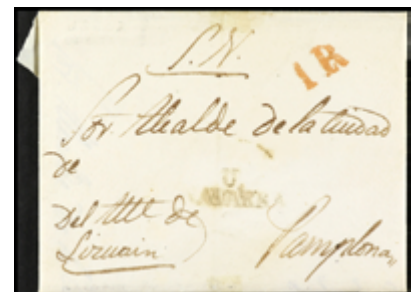 S. N.
1R
Sor. Alcalde de la Ciudad
de
Del Alle de
Lizuain
Pamplona